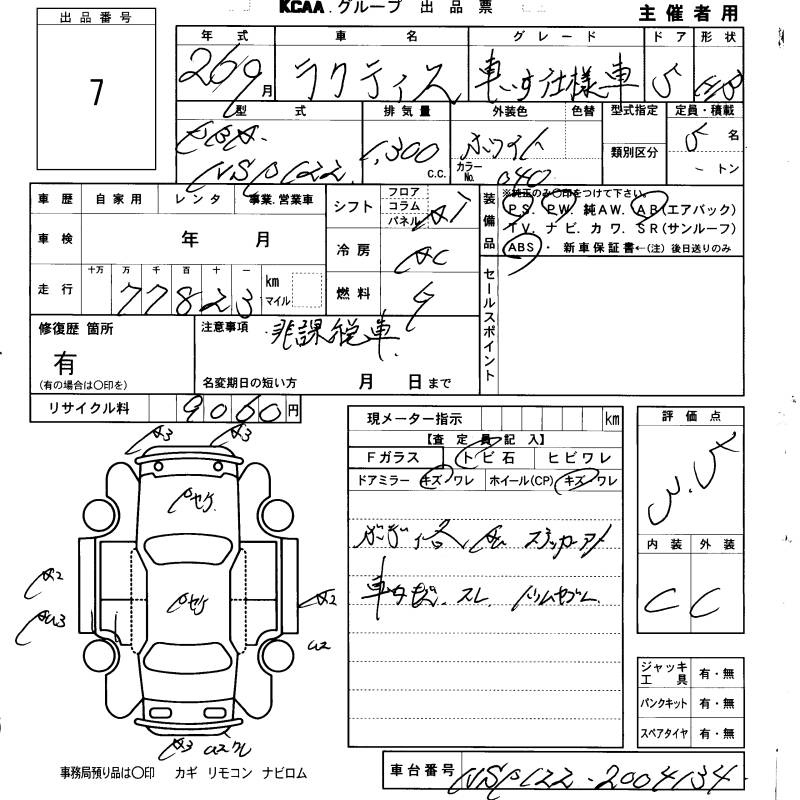 KCAA.グループ 出品票
主催者用
出品番号
7
年式 車名 グレード ドア 形状
26 9月 ラクティス 車いす仕様車 5
型式 排気量 外装色 色替 型式指定 定員・積載
NSP122 1,300 C.C. ホワイト 類別区分 5名
カラーNo. 040 トン
車歴 自家用 レンタ 事業.営業車
車検 年 月
走行 十万 万 千 百 十 一 km マイル
77823
シフト フロア コラム パネル AT
冷房 AC
燃料 G
装備品 ※純正のみ○印をつけて下さい。
P.S. P.W. 純AW. AB(エアバック)
TV. ナビ. カワ. SR(サンルーフ)
ABS ・ 新車保証書←(注)後日送りのみ
セールスポイント
修復歴 箇所
有
(有の場合は○印を)
注意事項 非課税車
名変期日の短い方 月 日まで
リサイクル料 9060円
現メーター指示 km
【査定員記入】
Fガラス トビ石 ヒビワレ
ドアミラー キズ ワレ ホイール(CP) キズ ワレ
スレ
評価点
3.5
内装 外装
C C
A3 A3
A2
A2
U2
A3
ジャッキ工具 有・無
パンクキット 有・無
スペアタイヤ 有・無
事務局預り品は○印 カギ リモコン ナビロム
車台番号 NSP122-2004134